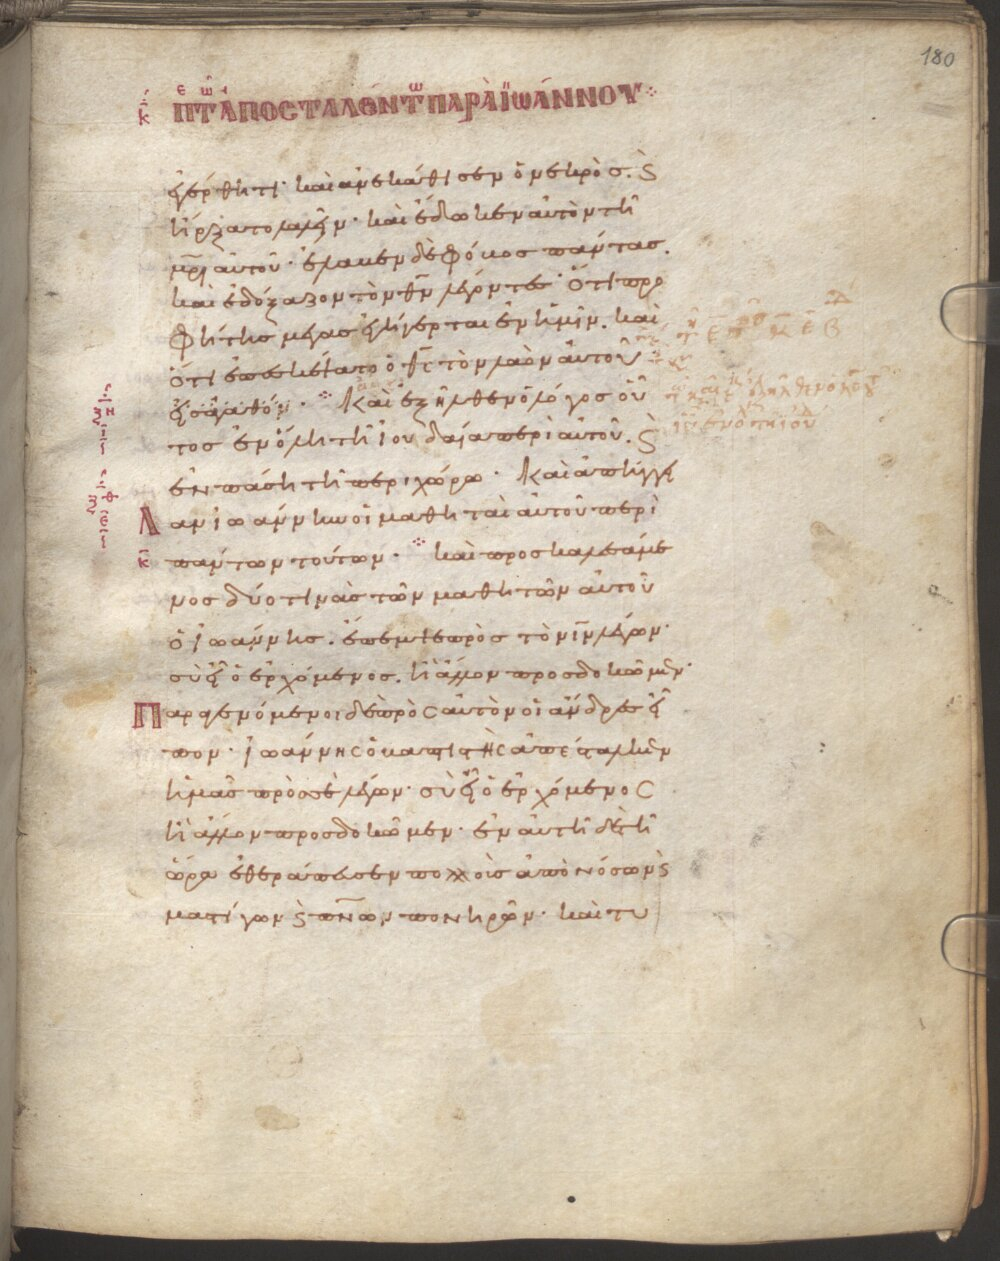 180
κ̅ πτ ἀποσταλέντ παρὰ ἰωάννου
ἐγέρθητι· καὶ ἀνεκάθισεν ὁ νεκρὸσ. ϗ
ἤρξατο λαλεῖν· καὶ ἔδωκεν αὐτὸν τῆ
μρ̅ι αὐτοῦ· ἔλαβεν δὲ φόβος πάντασ.
καὶ ἐδόξαζον τὸν θν̅ λέγοντες ὅτι προ
φήτης μέγας ἐγήγερται ἐν ἡμῖν. καὶ
ὅτι ἐπεσκέψατο ὁ θς̅ τὸν λαὸν αὐτοῦ
εἰς ἀγαθόν· Καὶ ἐξῆλθεν ὁ λόγος οὗ
τος ἐν ὅλη τῆ ἰουδαία περὶ αὐτοῦ. ϗ
ἐν πάση τῆ περιχώρω· Καὶ ἀπήγγει
λαν ἰωάννη οἱ μαθηταὶ αὐτοῦ περὶ
κ̅ πάντων τούτων· καὶ προσκαλεσάμε
νος δύο τινὰς τῶν μαθητῶν αὐτοῦ
ὁ ἰωάννης. ἔπεμψε πρὸς τὸν ιν̅ λέγων·
σὺ εἶ ὁ ἐρχόμενος. ἢ ἄλλον προσδοκῶμεν·
Παραγενόμενοι δὲ πρὸς αὐτὸν οἱ ἄνδρες εἶ
πον· ἰωάννης ὁ βαπτιστὴς ἀπέσταλκεν
ἡμᾶς πρὸς σὲ λέγων· σὺ εἶ ὁ ἐρχόμενος
ἢ ἄλλον προσδοκῶμεν· ἐν αὐτῆ δὲ τῆ
ὥρα ἐθεράπευσεν πολλοὺς ἀπὸ νόσων ϗ
μαστίγων ϗ πν̅ων πονηρῶν· καὶ τυ